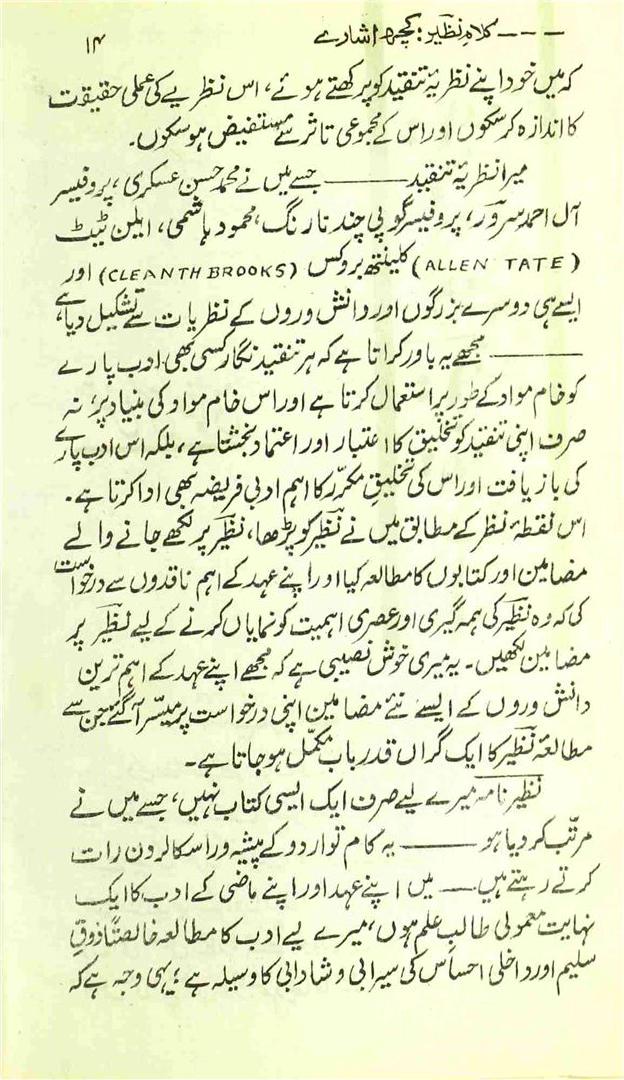 ۔۔۔ کلامِ نظیر: کچھ اشارے ۱۴
کہ میں خود اپنے نظریۂ تنقید کو پرکھتے ہوئے، اس نظریے کی عملی حقیقت
کا اندازہ کر سکوں اور اس کے مجموعی تاثر سے مستفیض ہو سکوں۔
میرا نظریۂ تنقید ——— جسے میں نے محمد حسن عسکری، پروفیسر
آل احمد سرور، پروفیسر گوپی چند نارنگ، محمود ہاشمی، ایلن ٹیٹ
(ALLEN TATE) کلینتھ بروکس (CLEANTH BROOKS) اور
ایسے ہی دوسرے بزرگوں اور دانش وروں کے نظریات سے تشکیل دیا ہے
——— مجھے یہ باور کراتا ہے کہ ہر تنقید نگار کسی بھی ادب پارے
کو خام مواد کے طور پر استعمال کرتا ہے اور اس خام مواد کی بنیاد پر، نہ
صرف اپنی تنقید کو تخلیق کا اعتبار اور اعتماد بخشتا ہے، بلکہ اس ادب پارے
کی بازیافت اور اس کی تخلیقِ مکرّر کا اہم ادبی فریضہ بھی ادا کرتا ہے۔
اس نقطۂ نظر کے مطابق میں نے نظیر کو پڑھا، نظیر پر لکھے جانے والے
مضامین اور کتابوں کا مطالعہ کیا اور اپنے عہد کے اہم ناقدوں سے درخواست
کی کہ وہ نظیر کی ہمہ گیری اور عصری اہمیت کو نمایاں کرنے کے لیے نظیر پر
مضامین لکھیں۔ یہ میری خوش نصیبی ہے کہ مجھے اپنے عہد کے اہم ترین
دانش وروں کے ایسے نئے مضامین اپنی درخواست پر میسّر آ گئے جن سے
مطالعۂ نظیر کا ایک گراں قدر باب مکمّل ہو جاتا ہے۔
نظیر نامہ میرے لیے صرف ایک ایسی کتاب نہیں، جسے میں نے
مرتّب کر دیا ہو ——— یہ کام تو اردو کے پیشہ ور اسکالر دن رات
کرتے رہتے ہیں —— میں اپنے عہد اور اپنے ماضی کے ادب کا ایک
نہایت معمولی طالبِ علم ہوں، میرے لیے ادب کا مطالعہ خالصتاً ذوقِ
سلیم اور داخلی احساس کی سیرابی و شادابی کا وسیلہ ہے؛ یہی وجہ ہے کہ